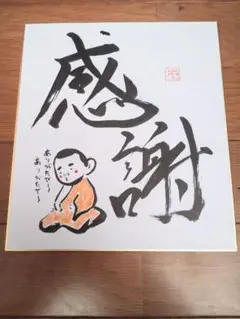 感謝
ありがたや〜
ありがたや〜